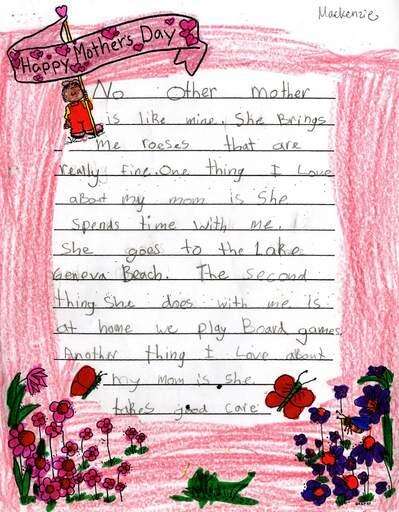 Mackenzie
Happy Mother's Day
No Other mother
is like mine. She Brings
me roeses that are
really fine. One thing I Love
about my mom is She
Spends time with me.
She goes to the Lake
Geneva Beach. The Second
thing She does with me is
at home we play Board games.
Another thing I Love about
my mom is she
takes good care